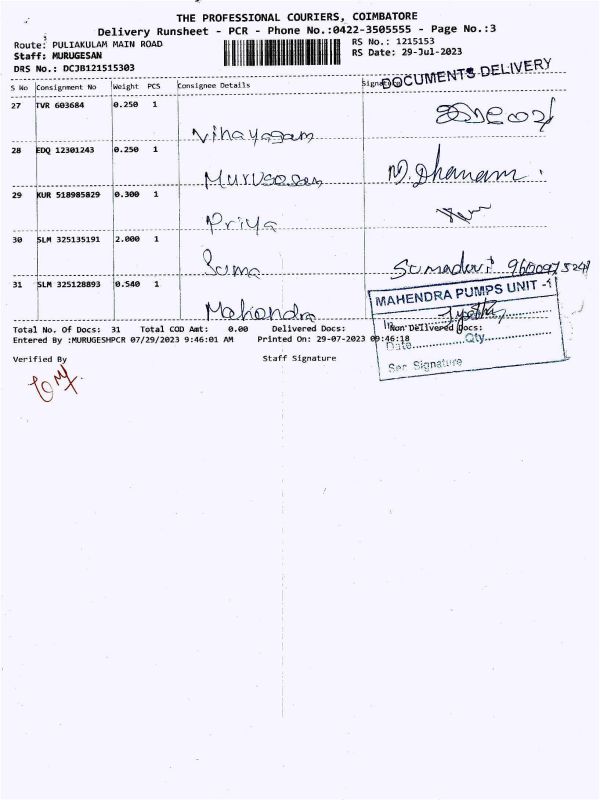 THE PROFESSIONAL COURIERS, COIMBATORE
Delivery Runsheet - PCR - Phone No.:0422-3505555 - Page No.:3
Route: PULIAKULAM MAIN ROAD RS No.: 1215153
Staff: MURUGESAN RS Date: 29-Jul-2023
DRS No.: DCJB121515303
DOCUMENTS DELIVERY
S No Consignment No Weight PCS Consignee Details
27 TVR 603684 0.250 1
Vinayagam
28 EDQ 12301243 0.250 1
Murugesan M. Dhanam.
29 KUR 518985829 0.300 1
Priya
30 SLM 325135191 2.000 1
Suma Sumadevi
31 SLM 325128893 0.540 1
Mahendra
MAHENDRA PUMPS UNIT -1
Total No. Of Docs: 31 Total COD Amt: 0.00 Delivered Docs: Non Delivered Docs:
Entered By :MURUGESHPCR 07/29/2023 9:46:01 AM Printed On: 29-07-2023 09:46:18
Date Qty
Verified By Staff Signature
Signature